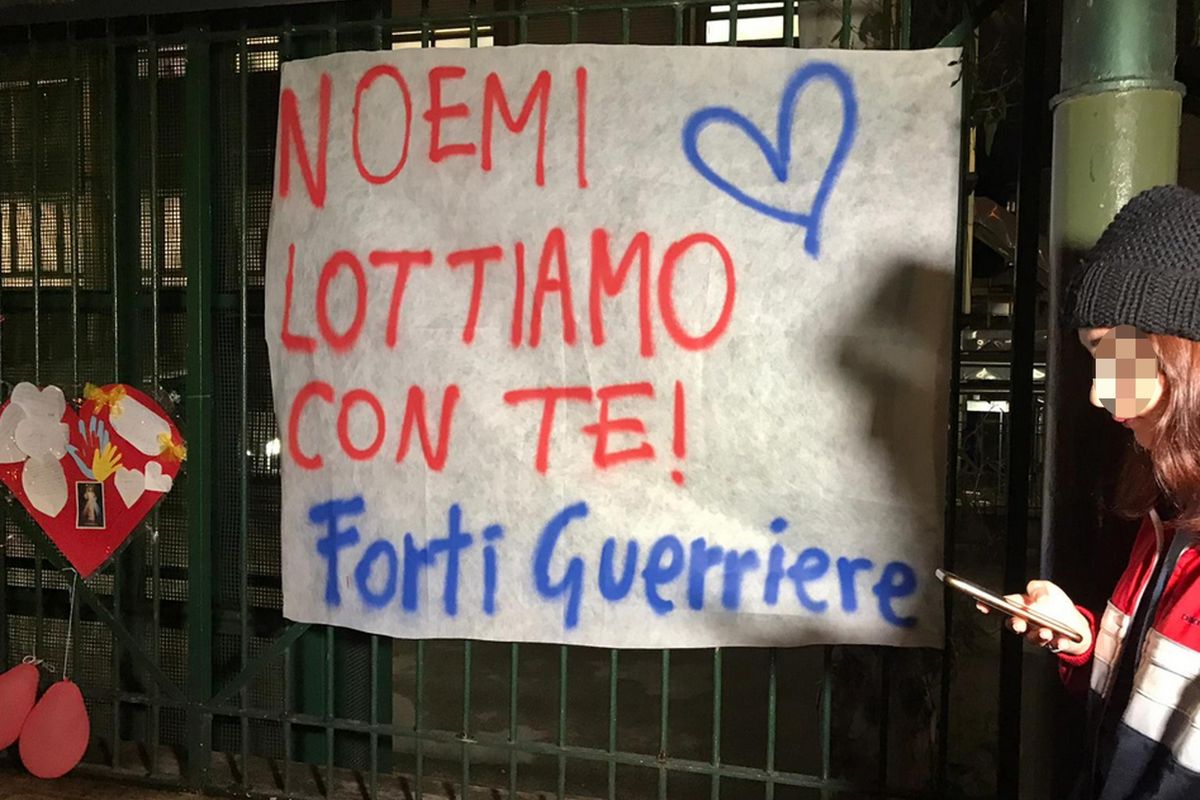 NOEMI
LOTTIAMO
CON TE!
Forti Guerriere